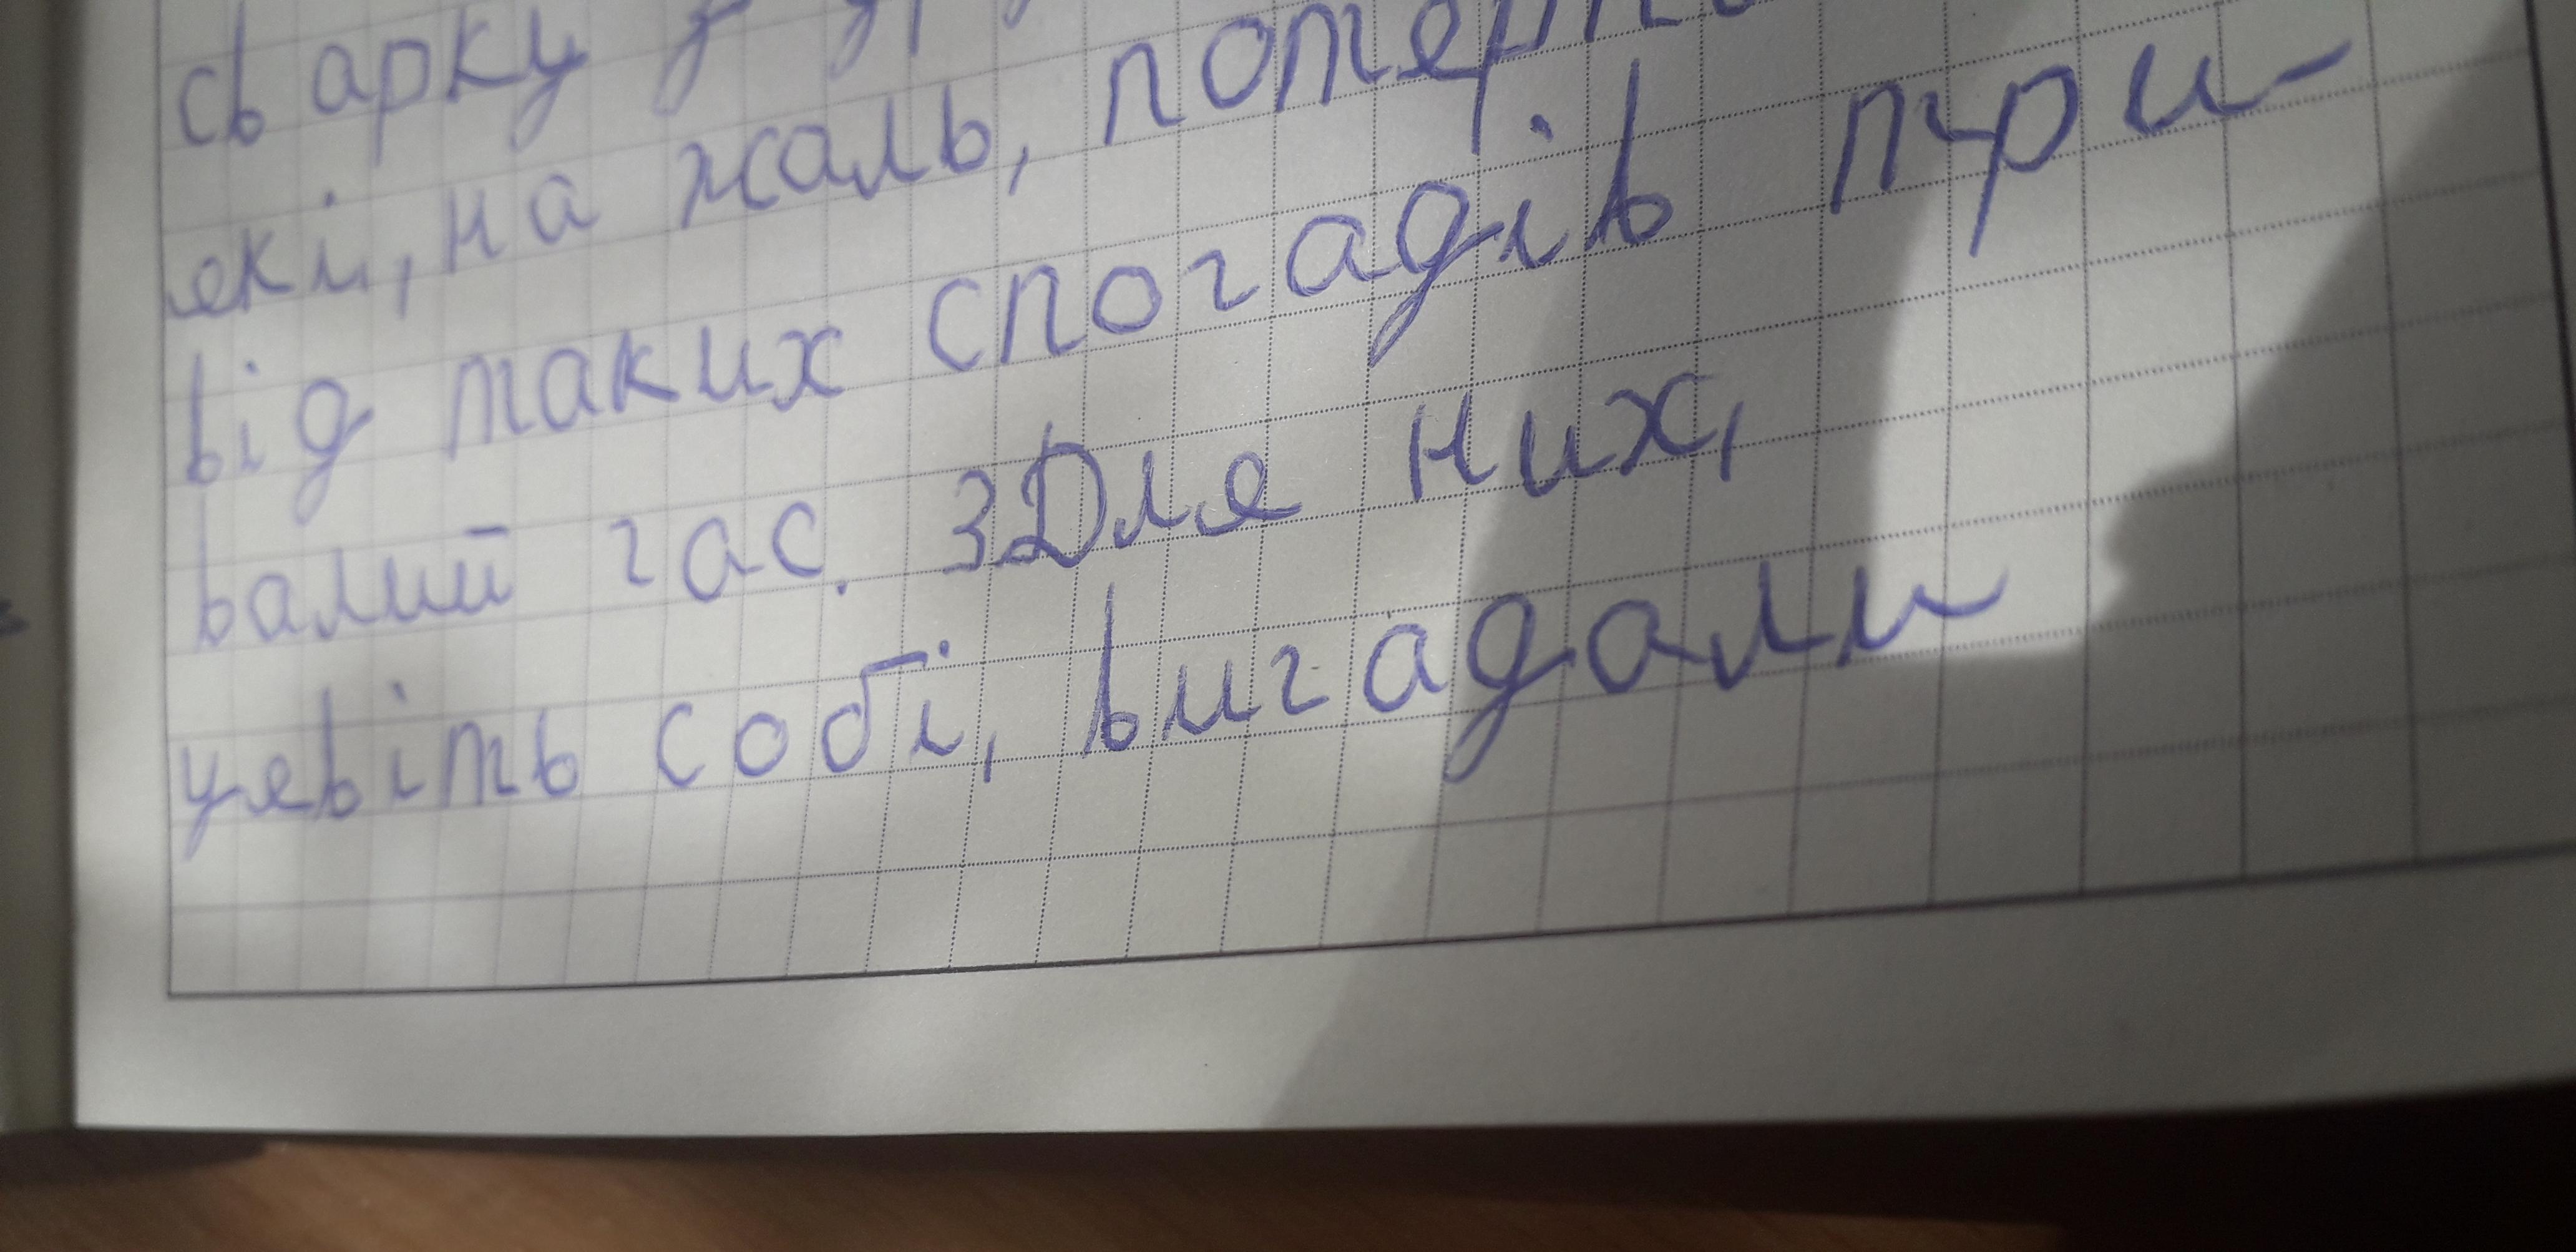 сварку з
які, на жаль,
від таких спогадів три-
валий час. 3Для них,
уявіть собі, вигадали